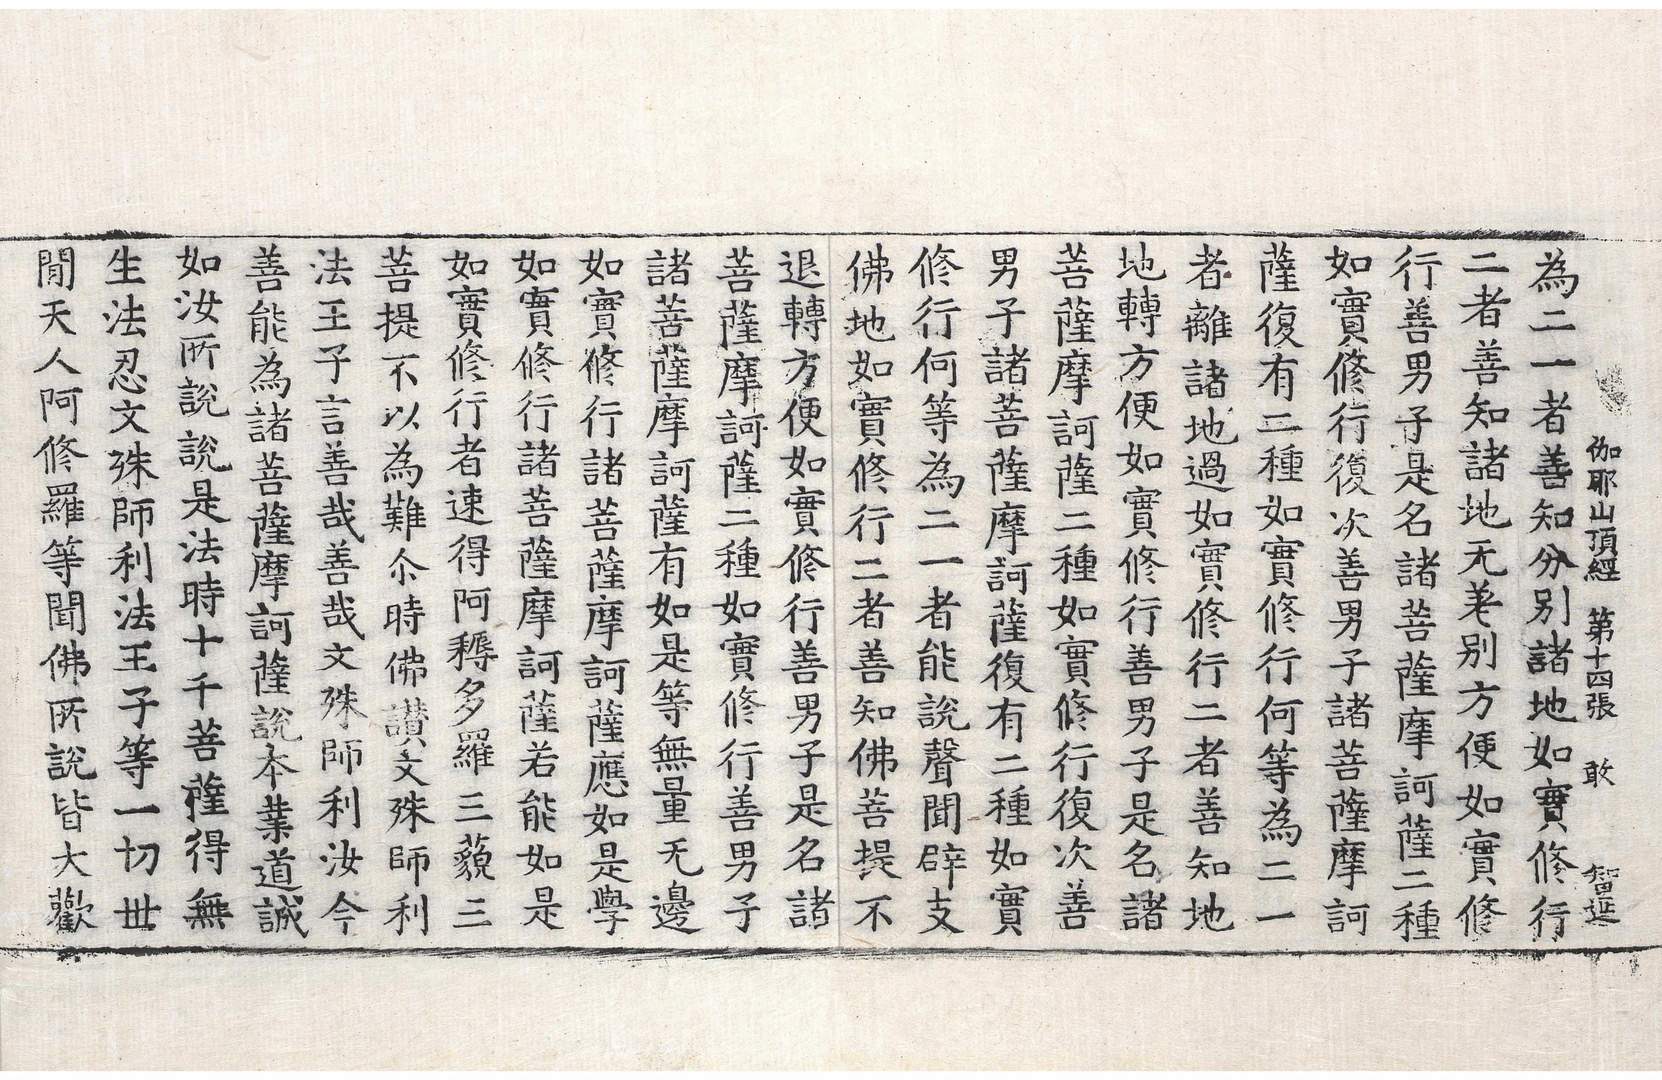 伽耶山頂經　第十四張　敢　智㝎
為二一者善知分别諸地如實修行
二者善知諸地无差别方便如實修
行善男子是名諸菩薩摩訶薩二種
如實修行復次善男子諸菩薩摩訶
薩復有二種如實修行何等為二一
者離諸地過如實修行二者善知地
地轉方便如實修行善男子是名諸
菩薩摩訶薩二種如實修行復次善
男子諸菩薩摩訶薩復有二種如實
修行何等為二一者能說聲聞辟支
佛地如實修行二者善知佛菩提不
退轉方便如實修行善男子是名諸
菩薩摩訶薩二種如實修行善男子
諸菩薩摩訶薩有如是等無量无邊
如實修行諸菩薩摩訶薩應如是學
如實修行諸菩薩摩訶薩若能如是
如實修行者速得阿耨多羅三藐三
菩提不以為難尒時佛讃文殊師利
法王子言善哉善哉文殊師利汝今
善能為諸菩薩摩訶薩說本業道誠
如汝所說說是法時十千菩薩得無
生法忍文殊師利法王子等一切世
間天人阿修羅等聞佛所說皆大歡